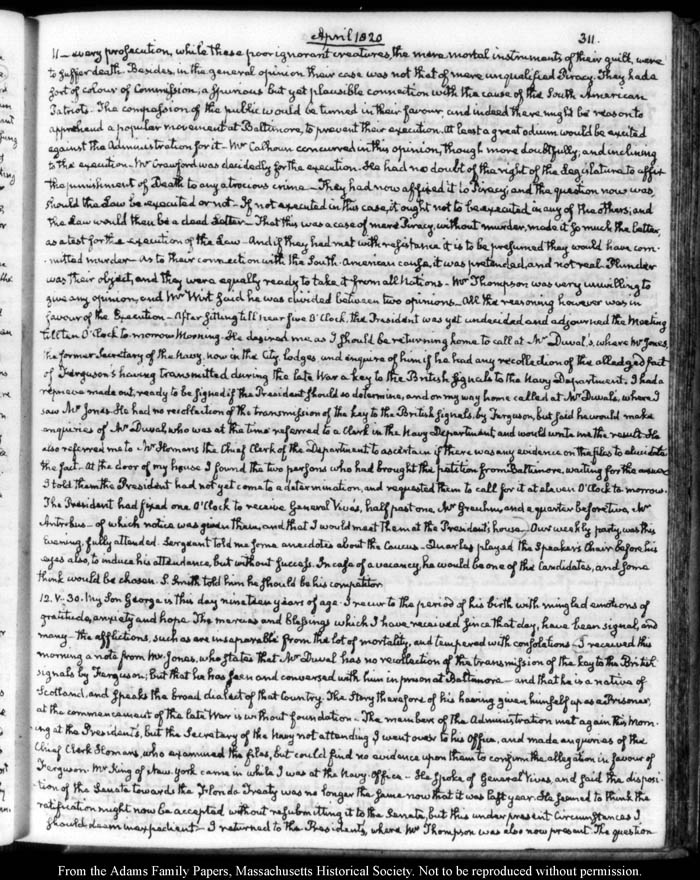 April 1820
311.
11 — every prosecution, while these poor ignorant creatures, the mere mortal instruments of their guilt, were
to suffer death. Besides, in the general opinion their case was not that of mere unqualified Piracy. They had a
sort of colour of Commission; a spurious but yet plausible connection with the cause of the South American
Patriots. The compassion of the public would be turned in their favour, and indeed there might be reason to
apprehend a popular movement at Baltimore, to prevent their execution. At least a great odium would be excited
against the Administration for it — Mr Calhoun concurred in this opinion, though more doubtfully, and inclining
to the execution — Mr Crawford was decidedly for the execution. He had no doubt of the right of the Legislature to affix
the punishment of Death to any atrocious crime — They had now affixed it to Piracy, and the question now was,
should the Law be executed or not — If not executed in this case, it ought not to be executed in any of the others; and
the Law would then be a dead Letter — That this was a case of mere Piracy, without murder, made it so much the better,
as a test for the execution of the Law — And if they had met with resistance it is to be presumed they would have com-
mitted murder — As to their connection with the South American cause, it was pretended, and not real. Plunder
was their object, and they were equally ready to take it from all Nations — Mr Thompson was very unwilling to
give any opinion, and Mr Wirt said he was divided between two opinions — All the reasoning however was in
favour of the Execution — After sitting till near five O'Clock, the President was yet undecided and adjourned the Meeting
till ten O'Clock to-morrow Morning. He desired me, as I should be returning home to call at Mr Duval's, where Mr Jones,
the former Secretary of the Navy, now in the City lodges, and enquire of him if he had any recollection of the alledged fact
of Ferguson's having transmitted during the late War a key to the British Signals to the Navy Department. I had a
reprieve made out, ready to be signed if the President should so determine, and on my way home called at Mr Duval's, where I
saw Mr Jones. He had no recollection of the transmission of the key to the British signals, by Ferguson, but said he would make
enquiries of Mr Duval, who was at the time referred to a Clerk in the Navy Department, and would write me the result. He
also referred me to Mr Homans the Chief Clerk of the Department to ascertain if there was any evidence on the files to elucidate
the fact. At the door of my house I found the two persons who had brought the petition from Baltimore, waiting for the answer
I told them the President had not yet come to a determination, and requested them to call for it at eleven O'Clock to-morrow.
The President had fixed one O'Clock to receive General Vives, half past one Mr Greuhm, and a quarter before two, Mr
Antrobus — of which notice was given them, and that I would meet them at the President's house — Our weekly party, was this
Evening, fully attended. Sergeant told me some anecdotes about the Caucus — Quarles played the Speaker's Chair before his
eyes also, to induce his attendance, but without success. In case of a vacancy, he would be one of the Candidates, and some
think would be chosen. S. Smith told him he should be his competitor.
12. V. 30. My Son George is this day nineteen years of age. I recur to the period of his birth with mingled emotions of
gratitude, anxiety and hope. The mercies and blessings which I have received since that day, have been signal, and
many — the afflictions, such as are inseparable from the lot of mortality, and tempered with consolations — I received this
morning a note from Mr Jones, who states that Mr Duval has no recollection of the transmission of the key to the British
signals by Ferguson; but that he has seen and conversed with him in prison at Baltimore — and that he is a native of
Scotland, and speaks the broad dialect of that Country. The Story therefore of his having given himself up as a Prisoner,
at the commencement of the late War is without foundation — The members of the Administration met again this Morn-
ing at the President's, but the Secretary of the Navy not attending I went over to his Office, and made enquiries of the
Chief Clerk Homans, who examined the files, but could find no evidence upon them to confirm the allegation in favour of
Ferguson. Mr King of New-York came in while I was at the Navy Office — He spoke of General Vives, and said the disposi-
tion of the Senate towards the Florida Treaty was no longer the same now that it was last year. He seemed to think the
ratification might now be accepted without resubmitting it to the Senate, but this under present Circumstances I
should deem inexpedient — I returned to the President's, where Mr Thompson was also now present. The question
From the Adams Family Papers, Massachusetts Historical Society. Not to be reproduced without permission.